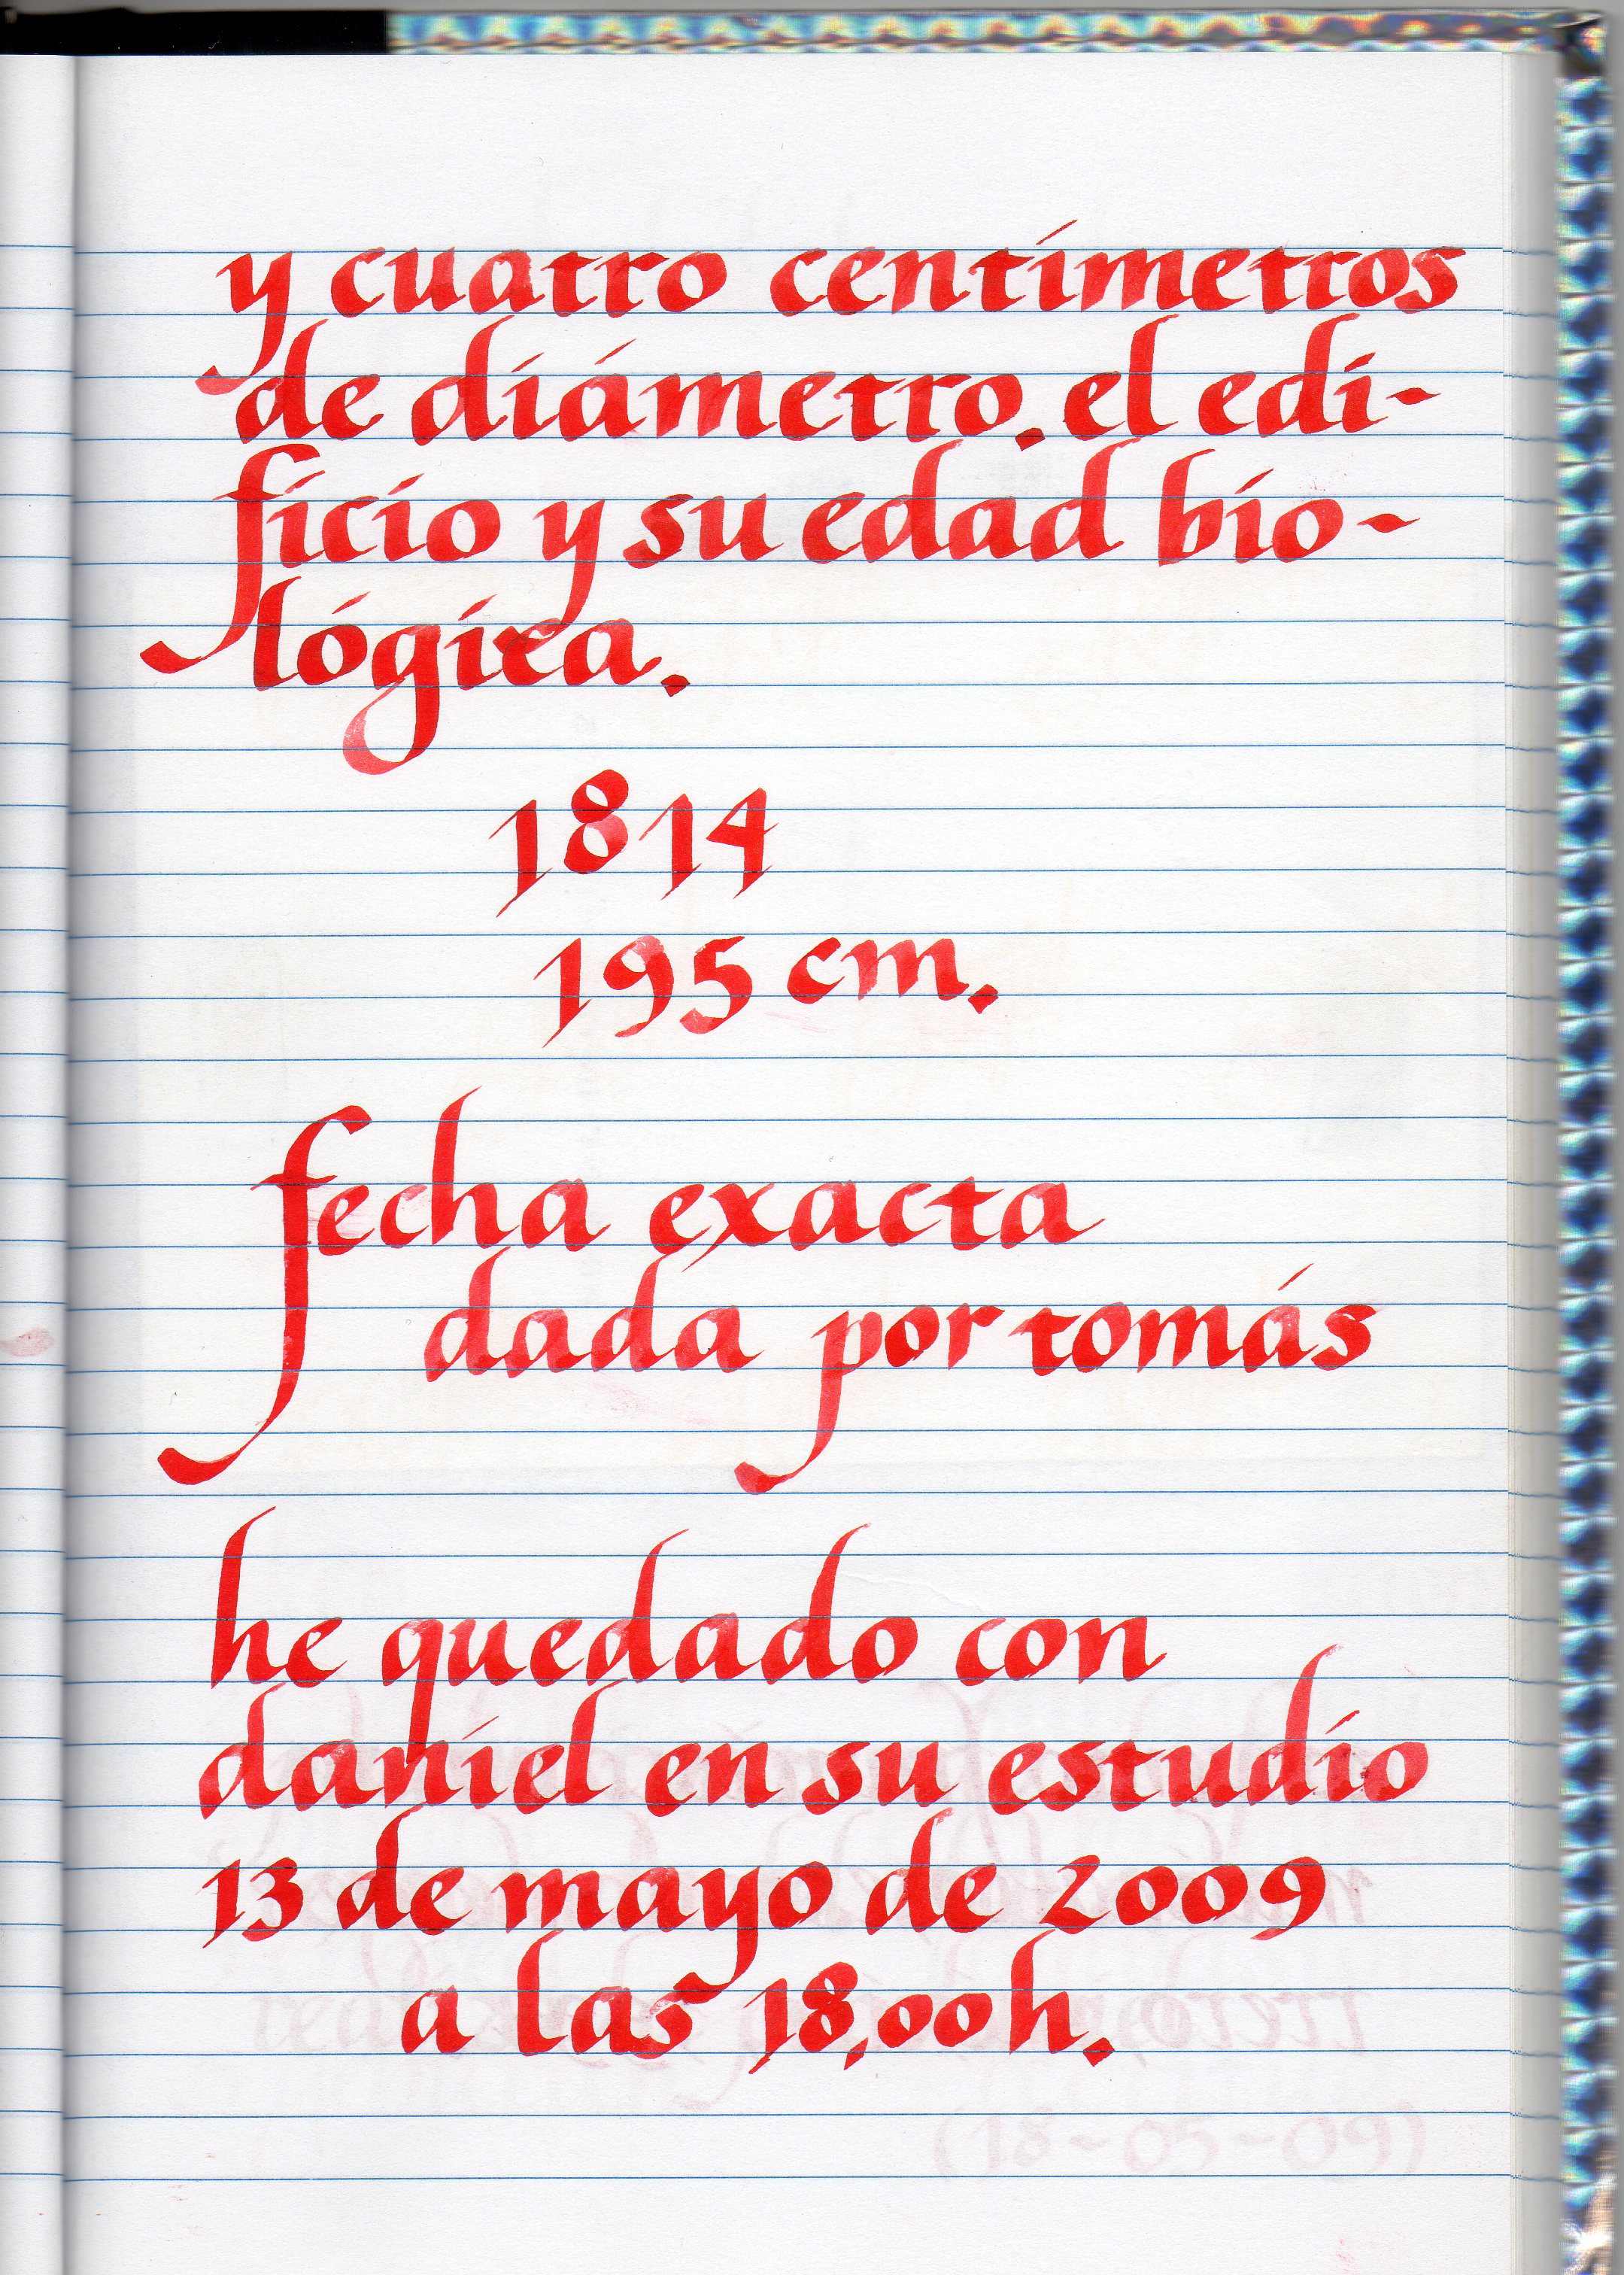 y cuatro centímetros
de diámetro. el edi-
ficio y su edad bio-
lógica.
1814
195 cm.
fecha exacta
dada por tomás
he quedado con
daniel en su estudio
13 de mayo de 2009
a las 18,00h.
(18-05-09)